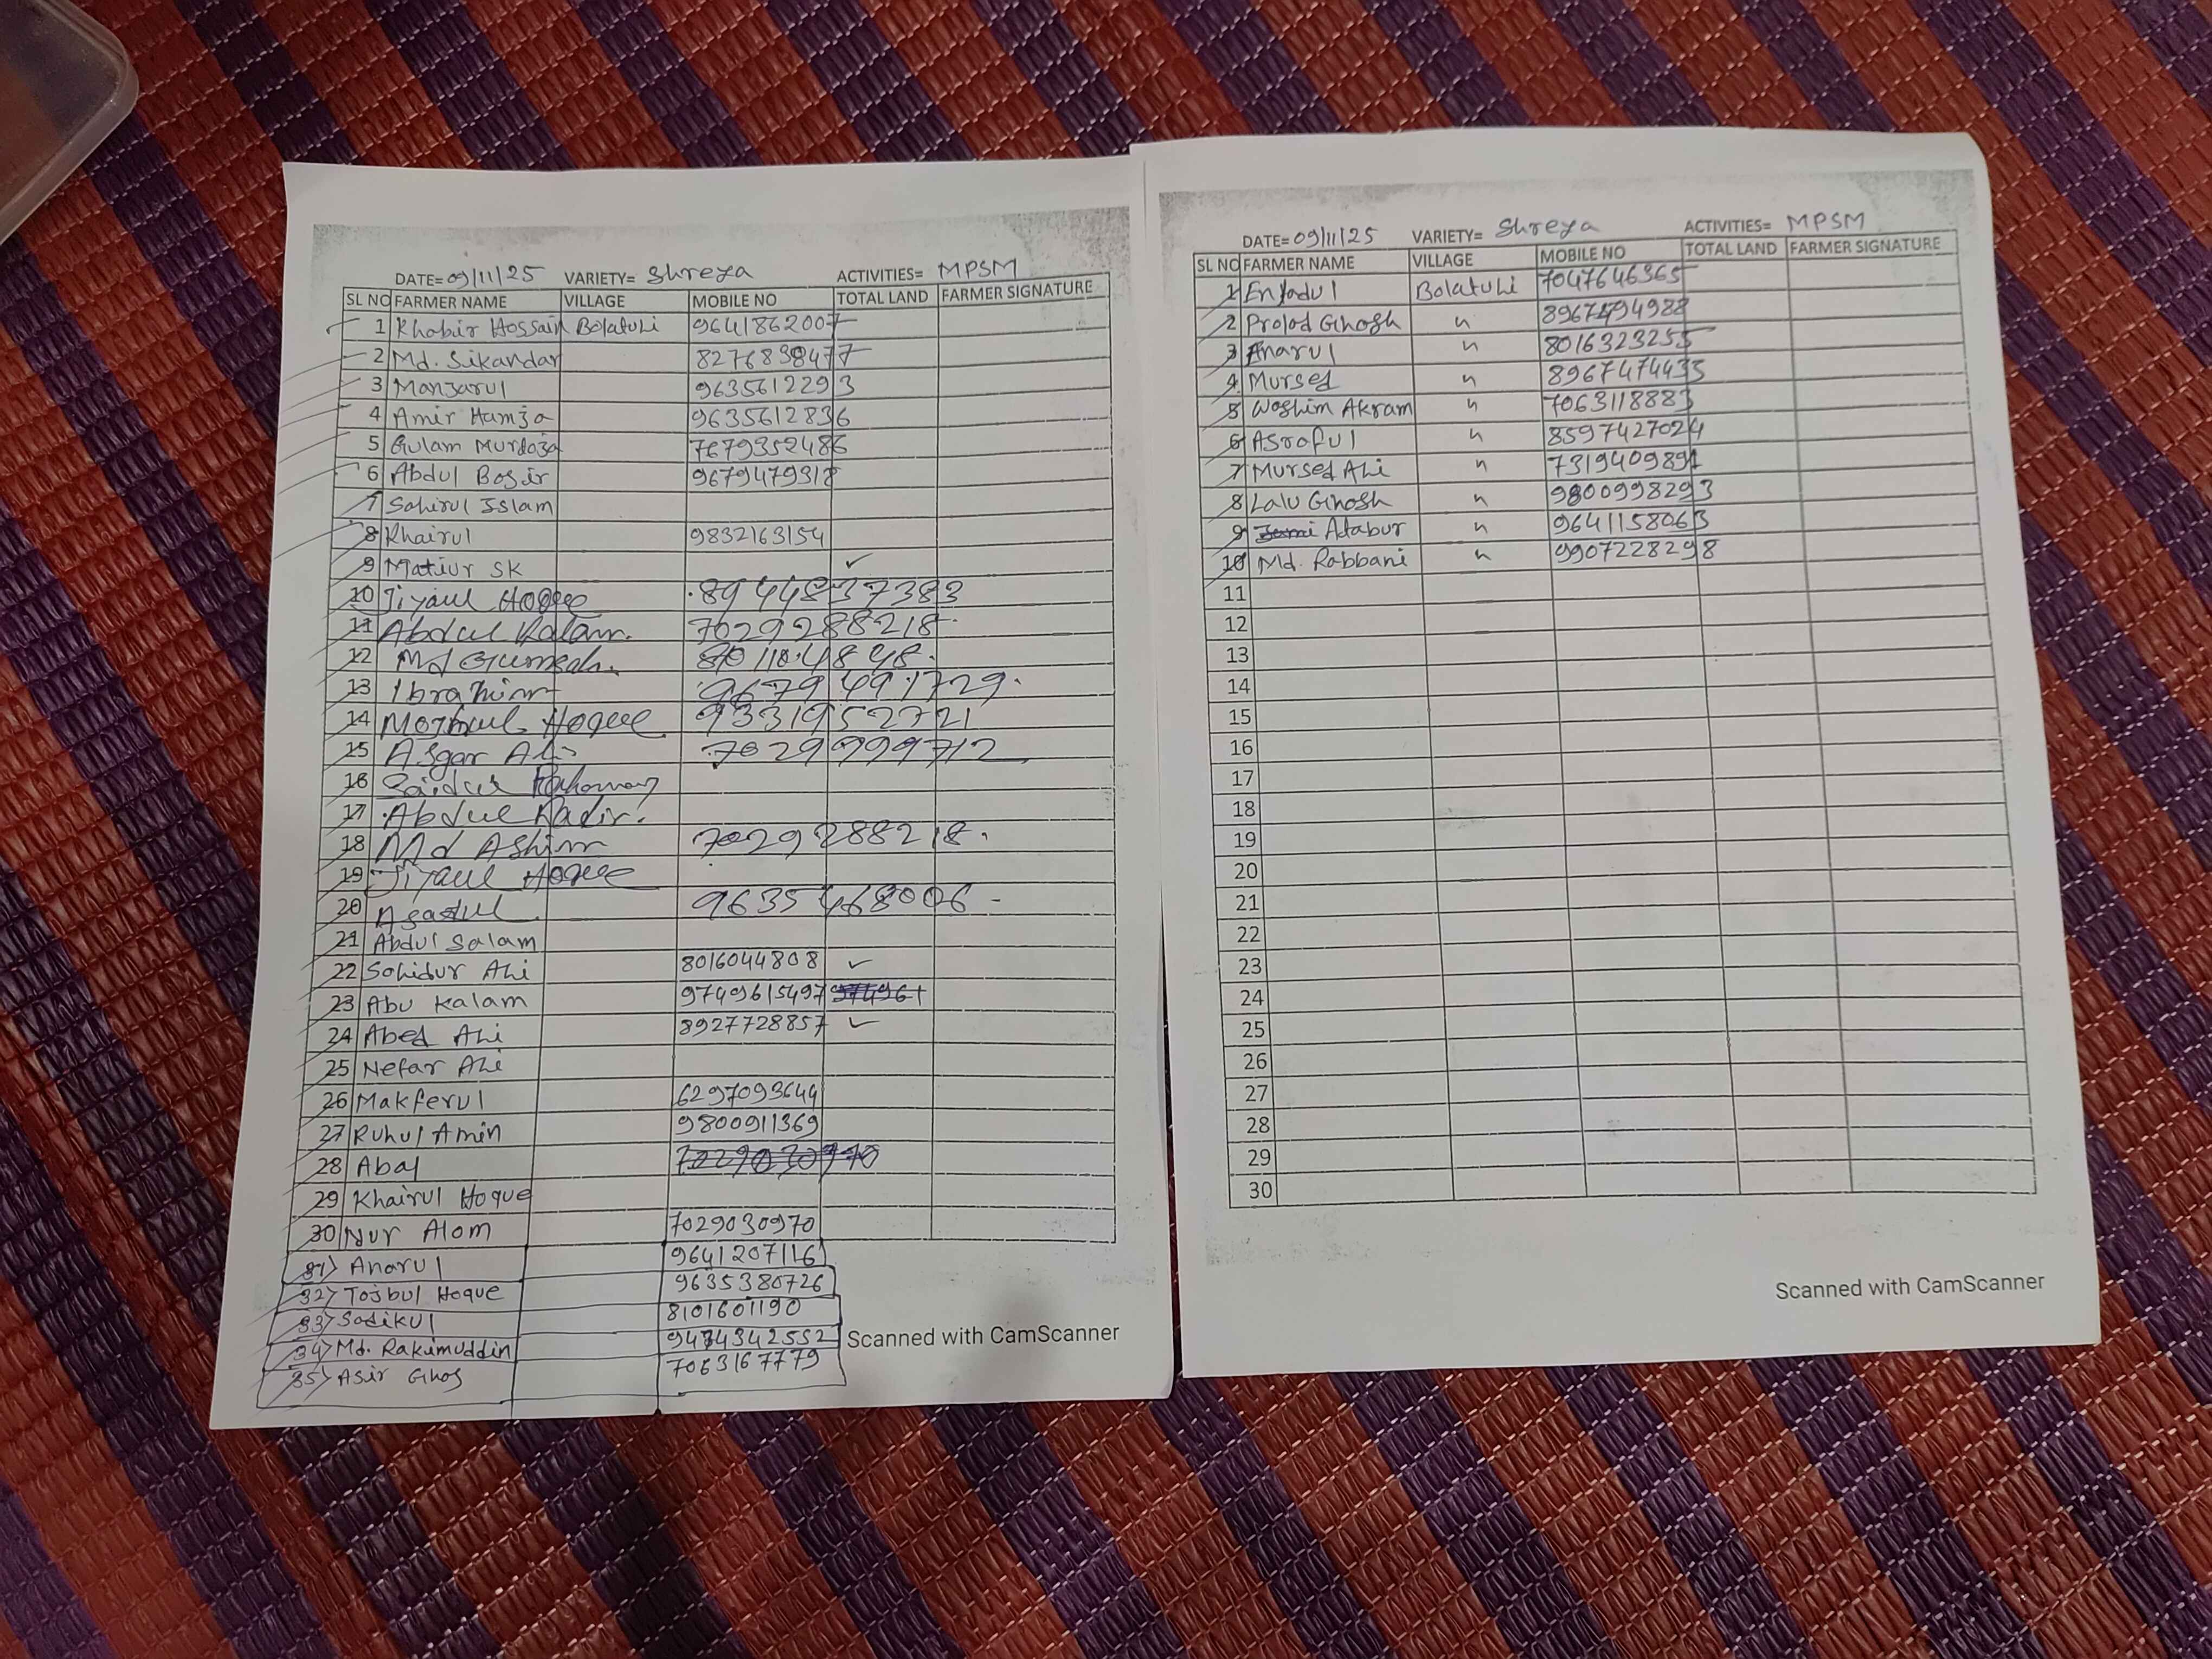 DATE= 09/11/25 VARIETY= Shreya ACTIVITIES= MPSM
SL NO FARMER NAME VILLAGE MOBILE NO TOTAL LAND FARMER SIGNATURE
1 Khabir Hossain Bolatuli 9641862007
2 Md. Sikandar 8276838477
3 Manjarul 9635612293
4 Amir Hamza 9635612836
5 Gulam Murdaza 7679352486
6 Abdul Bosir 9679479318
7 Sahirul Islam
8 Khairul 9832163154
9 Matiur SK ✓
10 Jiyaul Hoque 8944837383
11 Abdul Kalam. 7029288218
12 Md
13 Ibrahim 9679491729.
14 Hoque 9331952721
15 Asgar Ali 7029999712
16 Saidur Rahaman
17 Abdul Kadir.
18 Md Ashim 7029288218.
19 Jiyaul Hoque
20 9635468006
21 Abdul Salam
22 Sohidur Ali 8016044808 ✓
23 Abu Kalam 9749615497 974961
24 Abed Ali 8927728857 ✓
25 Nefar Ali
26 Makferul 6297093644
27 Ruhul Amin 9800911369
28 Abal 7029030970
29 Khairul Hoque
30 Nur Alom 7029030970
31) Anarul 9641207116
32) Tojbul Hoque 9635380726
33) Sadikul 8101601190
34) Md. Rakimuddin 9474342552
35) Asir Ghos 7063167779
Scanned with CamScanner
DATE= 09/11/25 VARIETY= Shreya ACTIVITIES= MPSM
SL NO FARMER NAME VILLAGE MOBILE NO TOTAL LAND FARMER SIGNATURE
1 Enjadul Bolatuli 7047646365
2 Prolod Ghosh " 8967494988
3 Anarul " 8016323255
4 Mursed " 8967474435
5 Woshim Akram " 7063118883
6 Asraful " 8597427024
7 Mursed Ali " 7319409891
8 Lalu Ghosh " 9800998293
9 Atabur " 9641158063
10 Md. Rabbani " 9907228298
11
12
13
14
15
16
17
18
19
20
21
22
23
24
25
26
27
28
29
30
Scanned with CamScanner